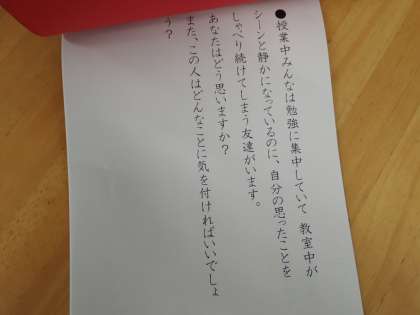 ●授業中みんなは勉強に集中していて 教室中が
シーンと静かになっているのに、自分の思ったことを
しゃべり続けてしまう友達がいます。
あなたはどう思いますか？
また、この人はどんなことに気を付ければいいでしょ
う？